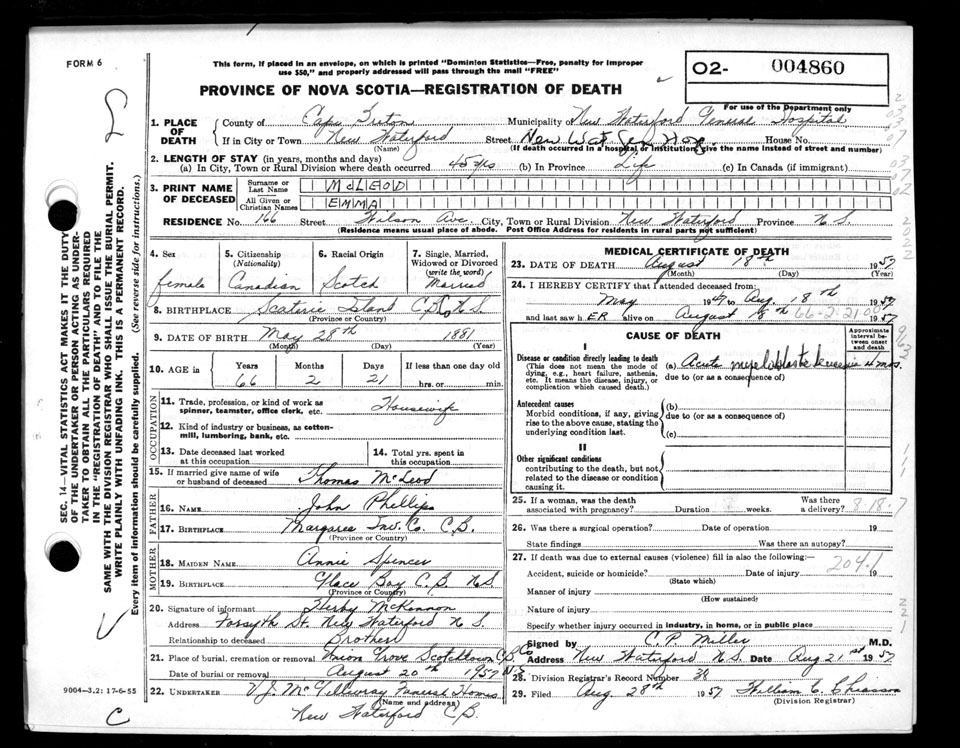 FORM 6
This form, if placed in an envelope, on which is printed "Dominion Statistics—Free, penalty for improper
use $50," and properly addressed will pass through the mail "FREE"
O2- 004860
For use of the Department only
PROVINCE OF NOVA SCOTIA—REGISTRATION OF DEATH
1. PLACE OF DEATH
County of Cape Breton Municipality of New Waterford General Hospital
If in City or Town New Waterford Street New Wat. Gen Hos. House No.
(Name) (If death occurred in a hospital or institution, give the name instead of street and number)
2. LENGTH OF STAY (in years, months and days)
(a) In City, Town or Rural Division where death occurred 45 yrs (b) In Province Life (c) In Canada (if immigrant)
3. PRINT NAME OF DECEASED
Surname or Last Name McLEOD
All Given or Christian Names EMMA
RESIDENCE No. 166 Street Wilson Ave. City, Town or Rural Division New Waterford Province N.S.
(Residence means usual place of abode. Post Office Address for residents in rural parts not sufficient)
4. Sex female
5. Citizenship (Nationality) Canadian
6. Racial Origin Scotch
7. Single, Married, Widowed or Divorced (write the word) Married
8. BIRTHPLACE Scatarie Island C.B. N.S.
(Province or Country)
9. DATE OF BIRTH May 28th 1881
(Month) (Day) (Year)
10. AGE in Years 66 Months 2 Days 21 If less than one day old hrs. or min.
OCCUPATION
11. Trade, profession, or kind of work as spinner, teamster, office clerk, etc. Housewife
12. Kind of industry or business, as cotton-mill, lumbering, bank, etc.
13. Date deceased last worked at this occupation
14. Total yrs. spent in this occupation
15. If married give name of wife or husband of deceased Thomas McLeod
FATHER
16. NAME John Phillips
17. BIRTHPLACE Margaree Inv. Co. C.B.
(Province or Country)
MOTHER
18. MAIDEN NAME Annie Spencer
19. BIRTHPLACE Glace Bay C.B. N.S.
(Province or Country)
20. Signature of informant Herby McKennon
Address Forsyth St. New Waterford N.S.
Relationship to deceased Brother
21. Place of burial, cremation or removal Union Grove
Date of burial or removal August 20th 1957
22. UNDERTAKER V.J. McGillivray Funeral Homes
(Name and address)
New Waterford C.B.
MEDICAL CERTIFICATE OF DEATH
23. DATE OF DEATH August 18th 1957
(Month) (Day) (Year)
24. I HEREBY CERTIFY that I attended deceased from:
May 19 to Aug. 18th 1957
and last saw hER alive on August 18th 1957
66-2-21009
CAUSE OF DEATH
Approximate interval between onset and death
I
Disease or condition directly leading to death
(This does not mean the mode of dying, e.g., heart failure, asthenia, etc. It means the disease, injury, or complication which caused death.)
(a) Acute myeloblastic leucemia 4 mos.
due to (or as a consequence of)
Antecedent causes
Morbid conditions, if any, giving rise to the above cause, stating the underlying condition last.
(b)
due to (or as a consequence of)
(c)
II
Other significant conditions
contributing to the death, but not related to the disease or condition causing it.
25. If a woman, was the death associated with pregnancy? Duration weeks. Was there a delivery?
8-18-7
26. Was there a surgical operation? Date of operation 19
State findings Was there an autopsy?
27. If death was due to external causes (violence) fill in also the following:—
204-1
Accident, suicide or homicide? Date of injury 19
(State which)
Manner of injury
(How sustained)
Nature of injury
Specify whether injury occurred in industry, in home, or in public place
Signed by C.P. Miller M.D.
Address New Waterford N.S. Date Aug 21st 1957
28. Division Registrar's Record Number 38
29. Filed Aug. 28th 1957 William C. Chiasson
(Division Registrar)
SEC. 14—VITAL STATISTICS ACT MAKES IT THE DUTY
OF THE UNDERTAKER OR PERSON ACTING AS UNDER-
TAKER TO OBTAIN ALL THE PARTICULARS REQUIRED
IN THE "REGISTRATION OF DEATH" AND TO FILE THE
SAME WITH THE DIVISION REGISTRAR WHO SHALL ISSUE THE BURIAL PERMIT.
WRITE PLAINLY WITH UNFADING INK. THIS IS A PERMANENT RECORD.
Every item of information should be carefully supplied. (See reverse side for instructions.)
9004-3.2: 17-6-55
C